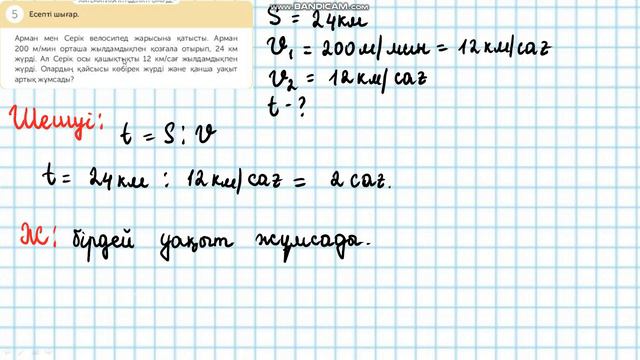 WWW.BANDICAM.COM
5 Есепті шығар.
Арман мен Серік велосипед жарысына қатысты. Арман
200 м/мин орташа жылдамдықпен қозғала отырып, 24 км
жүрді. Ал Серік осы қашықтықты 12 км/сағ жылдамдықпен
жүрді. Олардың қайсысы көбірек жүрді және қанша уақыт
артық жұмсады?
S = 24км
V₁ = 200м/мин = 12км/сағ
V₂ = 12км/сағ
t - ?
Шешуі:
t = S : V
t = 24км : 12км/сағ = 2сағ.
Ж: бірдей уақыт жұмсады.